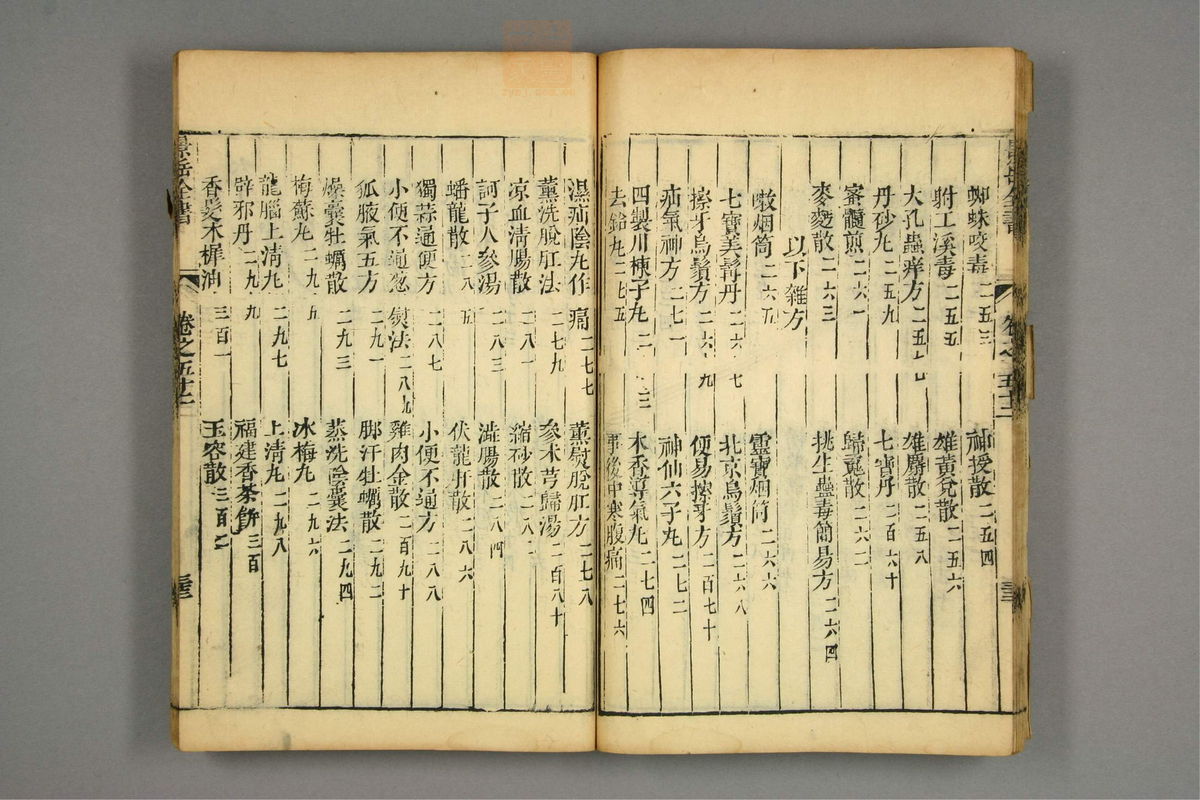 景岳全書 卷之五十二 三三
蜘蛛咬毒 二五三 神授散 二五四
射工溪毒 二五五 雄黃兌散 二五六
大孔蟲痒方 二五七 雄麝散 二五八
丹砂丸 二五九 七寶丹 二百六十
寄髓煎 二六一 歸魂散 二六二
麥麪散 二六三 挑生蠱毒簡易方 二六四
以下雜方
噙烟筒 二六五 靈寶烟筒 二六六
七寶美髯丹 二六七 北京烏鬚方 二六八
擦牙烏鬚方 二六九 便易擦牙方 二百七十
疝氣神方 二七一 神仙六子丸 二七二
四製川楝子丸 二七三 木香導氣丸 二七四
去鈴丸 二七五 事後中寒腹痛 二七六
濕疝陰丸作痛 二七七 薰熨脫肛方 二七八
薰洗脫肛法 二七九 參术芎歸湯 二百八十
凉血清腸散 二八一 縮砂散 二八二
訶子人參湯 二八三 澁腸散 二八四
蟠龍散 二八五 伏龍肝散 二八六
獨蒜通便方 二八七 小便不通方 二八八
小便不通葱熨法 二八九 雞肉金散 二百九十
狐腋氣五方 二九一 脚汗牡蠣散 二九二
燥囊牡蠣散 二九三 蒸洗陰囊法 二九四
梅蘇丸 二九五 冰梅丸 二九六
龍腦上清丸 二九七 上清丸 二九八
辟邪丹 二九九 福建香茶餅 三百
香髪木樨油 三百一 玉容散 三百二
景岳全書 卷之五十二